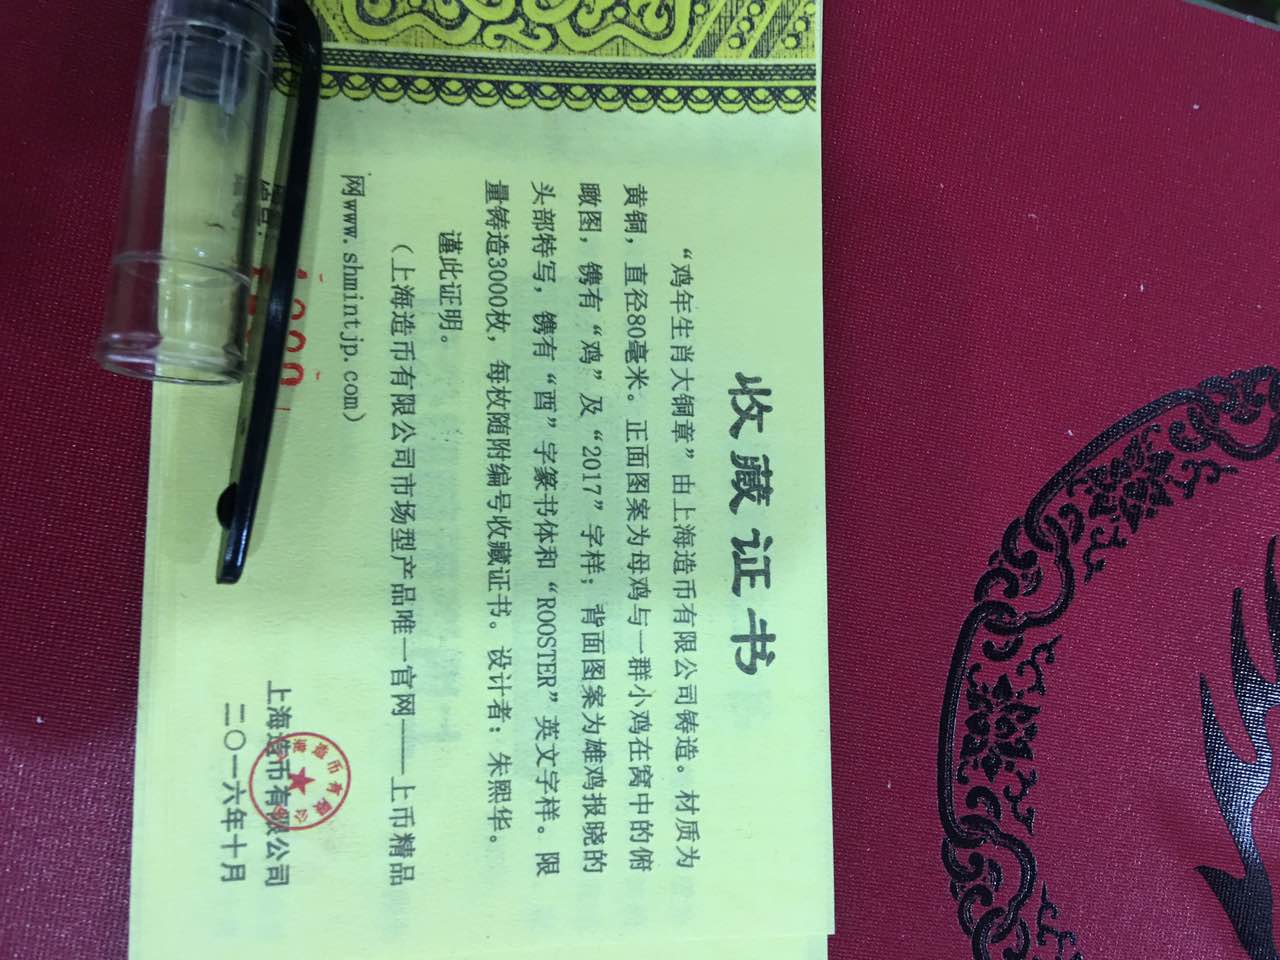 收藏证书
“鸡年生肖大铜章”由上海造币有限公司铸造。材质为
黄铜，直径80毫米。正面图案为母鸡与一群小鸡在窝中的俯
瞰图，镌有“鸡”及“2017”字样；背面图案为雄鸡报晓的
头部特写，镌有“酉”字篆书体和“ROOSTER”英文字样。限
量铸造3000枚，每枚随附编号收藏证书。设计者：朱熙华。
谨此证明。
（上海造币有限公司市场型产品唯一官网——上币精品
网www.shmintjp.com）
上海造币有限公司
二〇一六年十月